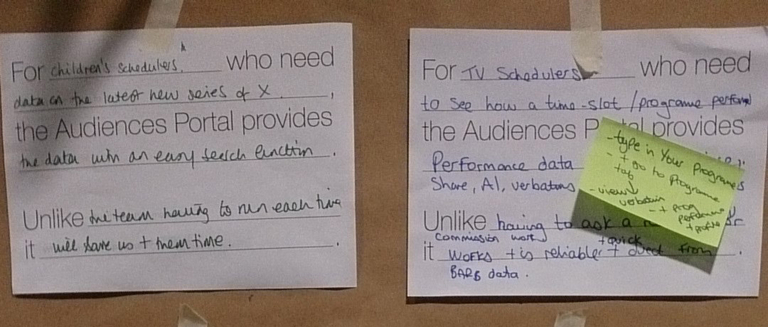 For children's schedulers, who need
data on the latest new series of X ,
the Audiences Portal provides
the data with an easy search function .
Unlike the team having to run each time
it will save us + them time. .
For TV Schedulers who need
to see how a time-slot / programe perform
the Audiences P tal provides
Performance data
Share, AI, verbatims
Unlike having to ask a
commission work
it works + is reliable + quick + direct from
BARB data.
- type in Your Programes
- + go to Programe
tab
- view
verbatim
- + prog
performance
+ profile